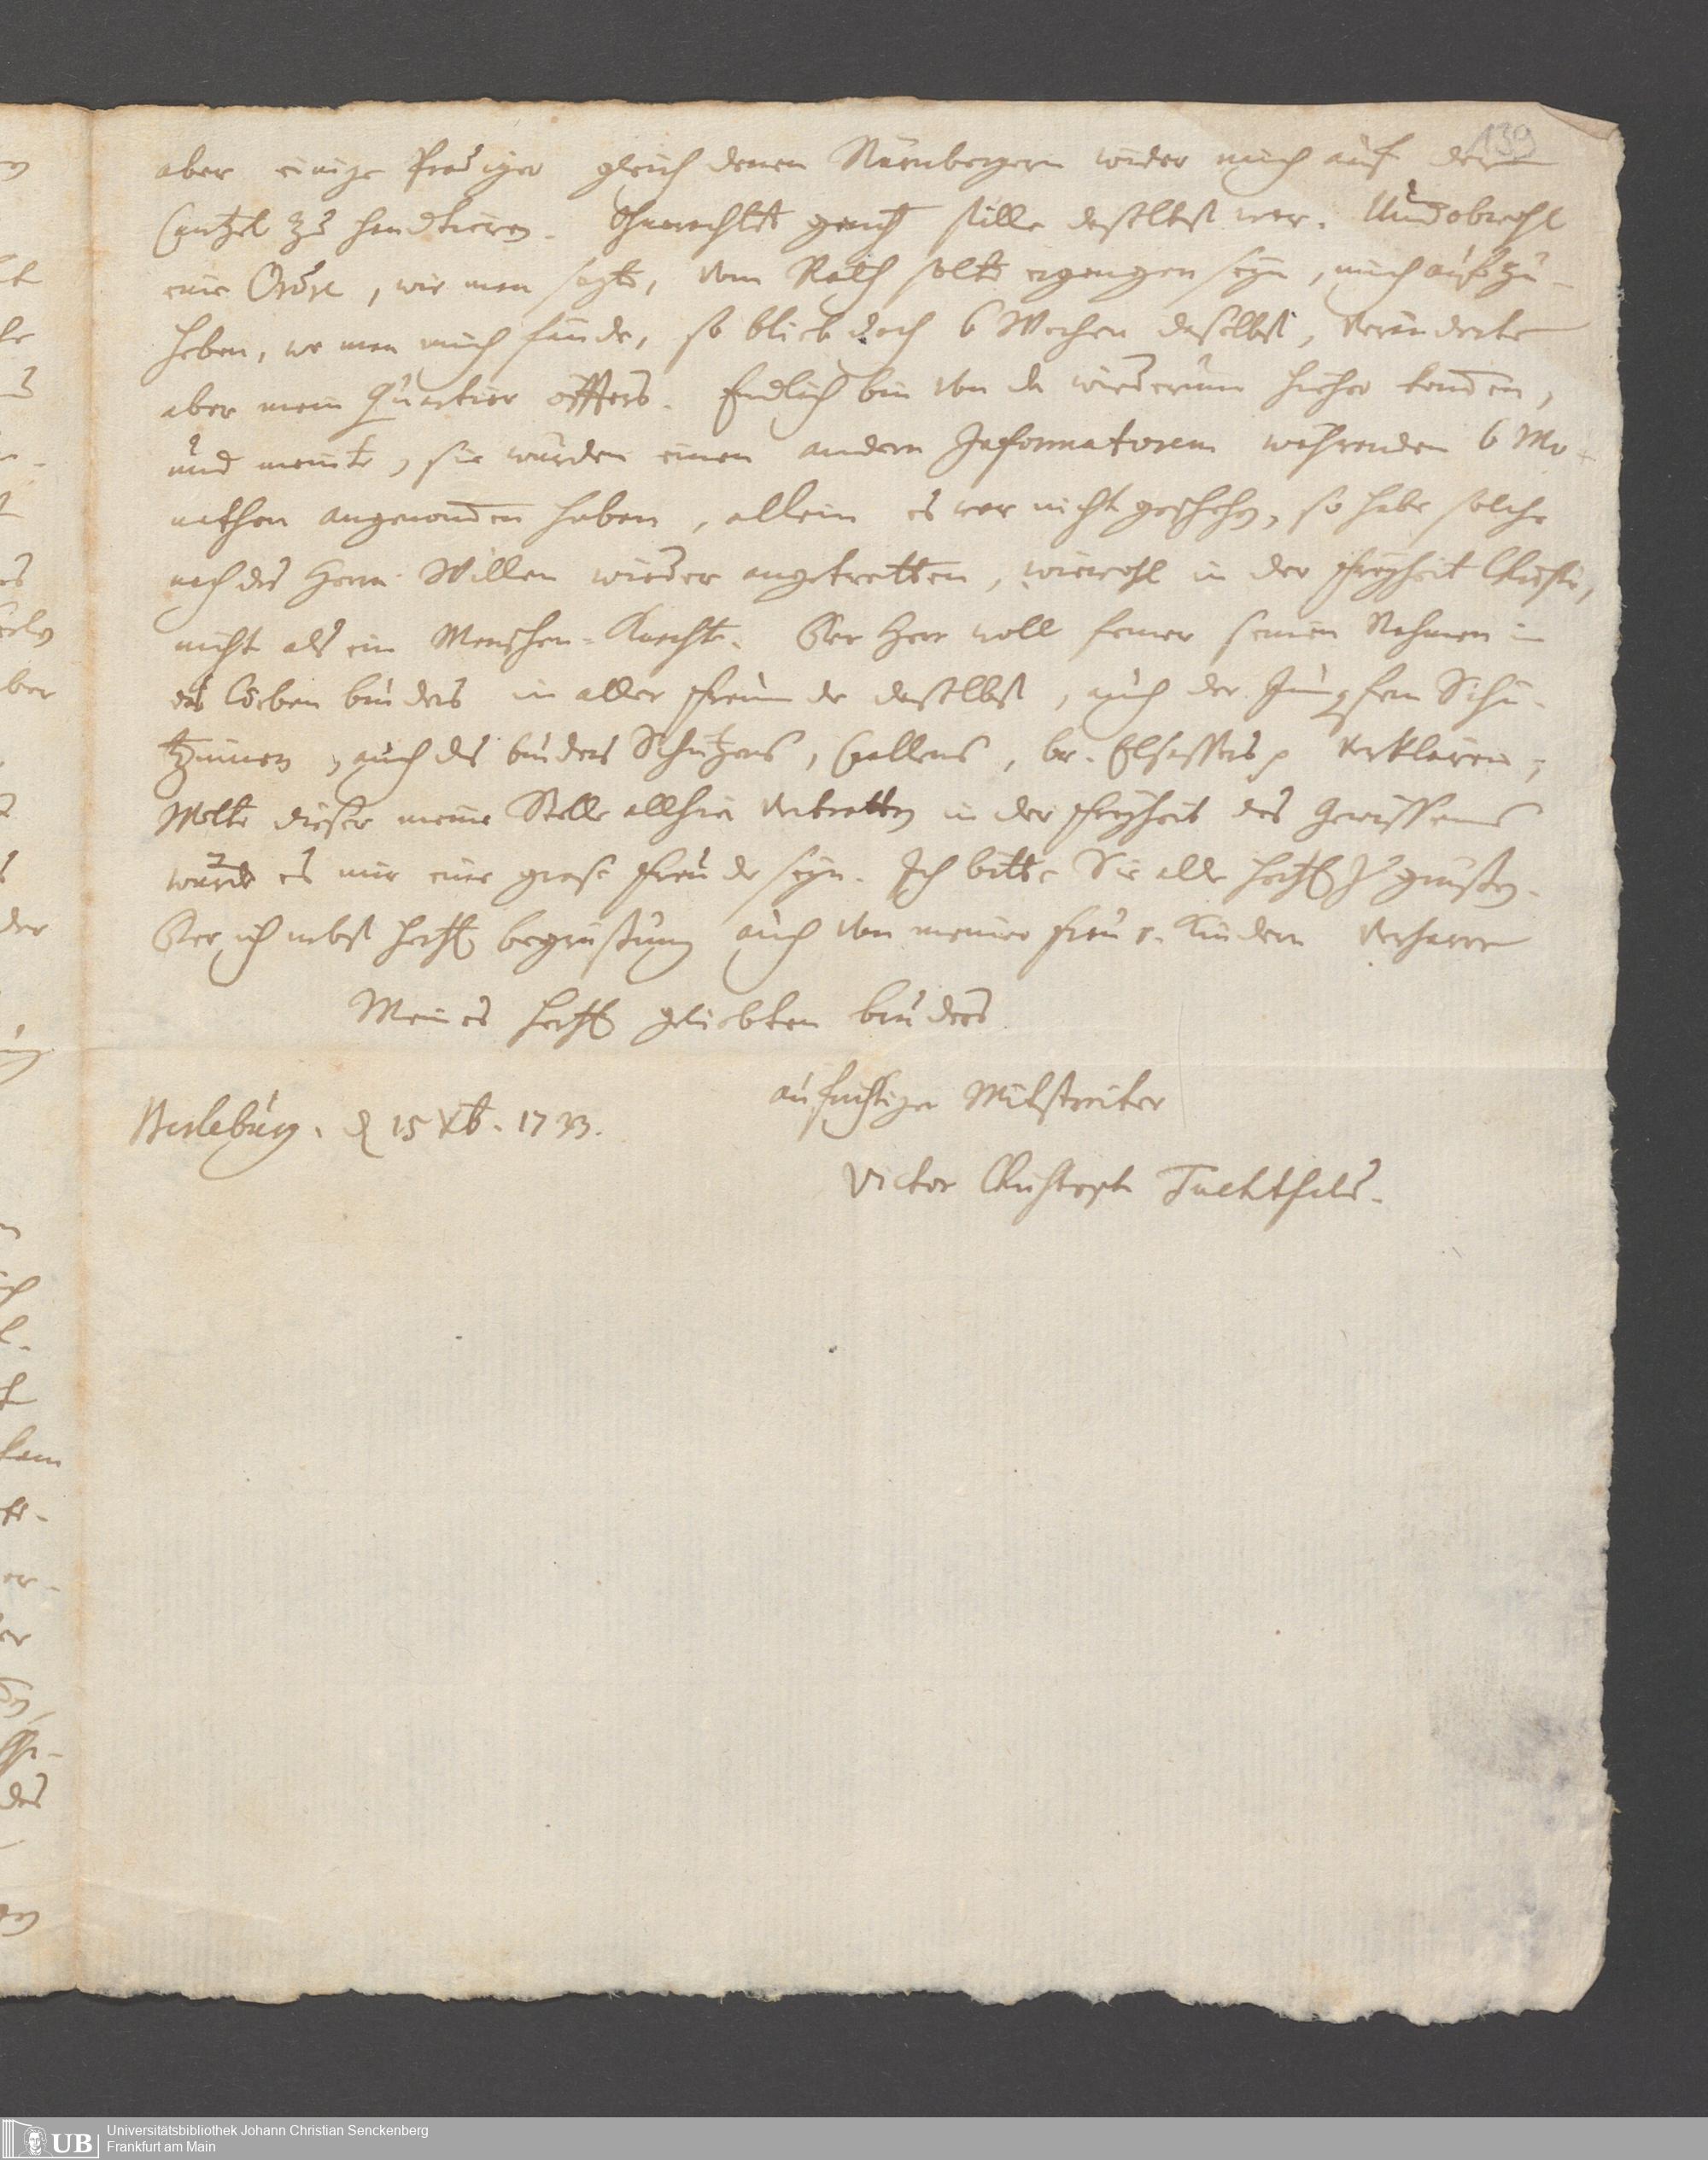 139
aber einige Prediger gleich denen Nürnbergern wider mich auf der
Cantzel zu handtieren. Ohnerachtet gantz stille daselbst war. Und obwohl
eine Ordre, wie man sagte, vom Rath solte ergangen seyn, mich aufzu-
heben, wo man mich fände, so blieb doch 6 Wochen daselbst, veränderte
aber mein Quartier öffters. Endlich bin von da wiederum hieher kom̅en,
und meinte, sie würden einen andern Informatorem währenden 6 Mo-
nathen angenom̅en haben, allein es war nicht geschehen, so habe solche
nach des Herrn Willen wieder angetretten, wiewohl in der Freyheit Christi,
nicht als ein Menschen-Knecht. Der Herr woll ferner seinen Nahmen in
des lieben bruders in aller Freunde daselbst, auch der Jungfern Schü-
tzinnen, auch des bruders Schützens, Gallens, br. Elsassers p verklären;
Wolte dieser meine Stelle allhier vertretten in der Freyheit des Gewissens
würde es mir eine grose Freude seyn. Ich bitte Sie alle hertzl zu grüßen.
Der ich nebst hertzl begrüßung auch von meiner Frau u. Kindern verharre
Meines hertzl geliebten bruders
aufrichtiger Mitstreiter
Berleburg. d 15 Xb. 1733.
Victor Christoph Tuchtfeld.
UB Universitätsbibliothek Johann Christian Senckenberg
Frankfurt am Main